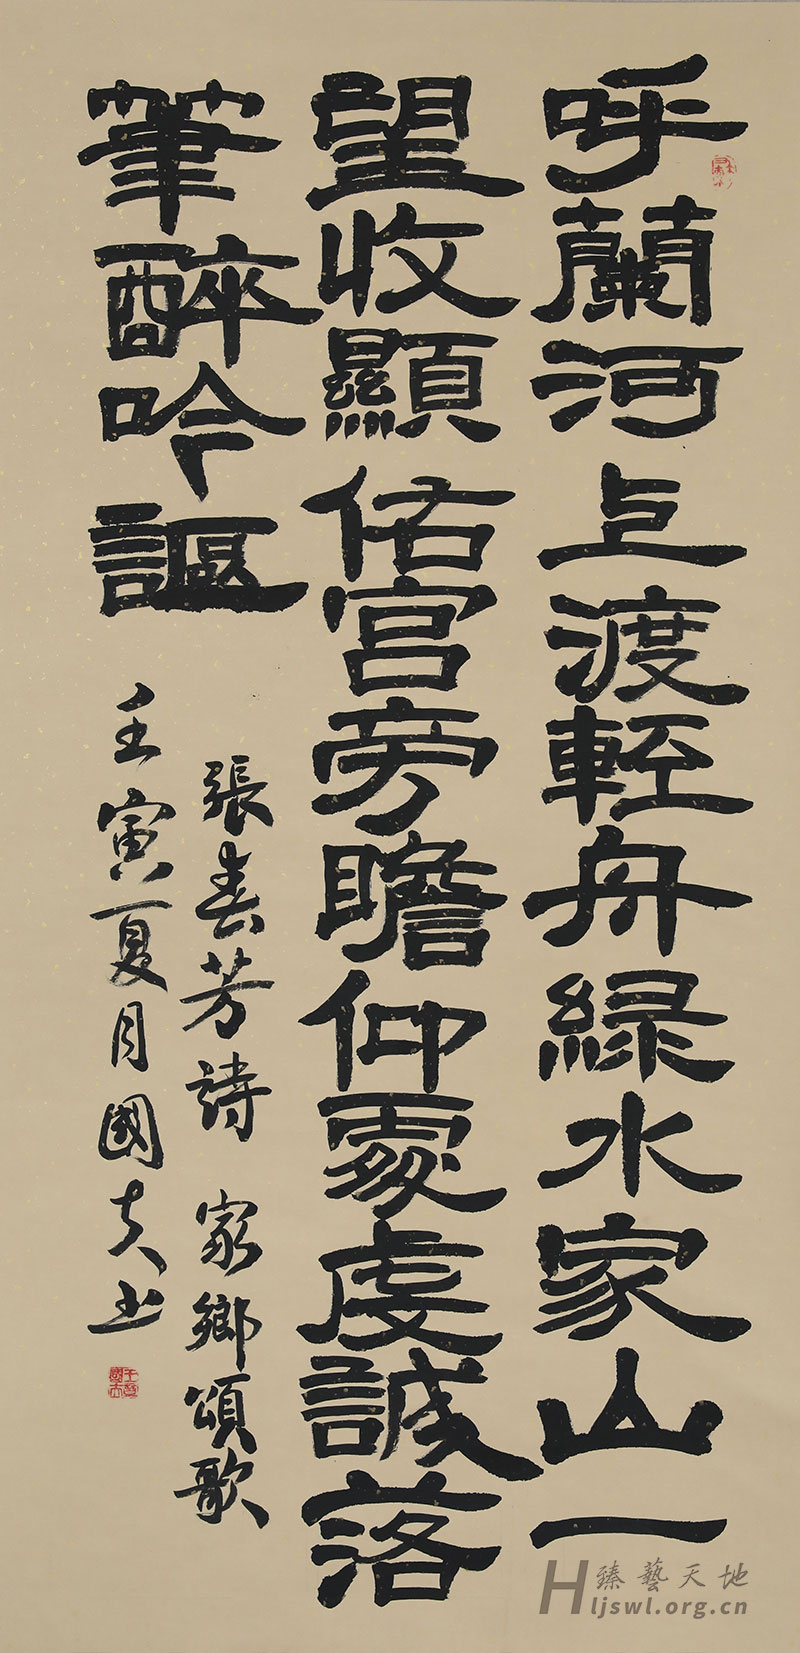 呼蘭河上渡輕舟綠水家山一
望收顯佑宮旁瞻仰處虔誠落
筆醉吟謳
張春芳詩 家鄉頌歌
壬寅夏月國夫书
臻藝天地
Hljswl.org.cn